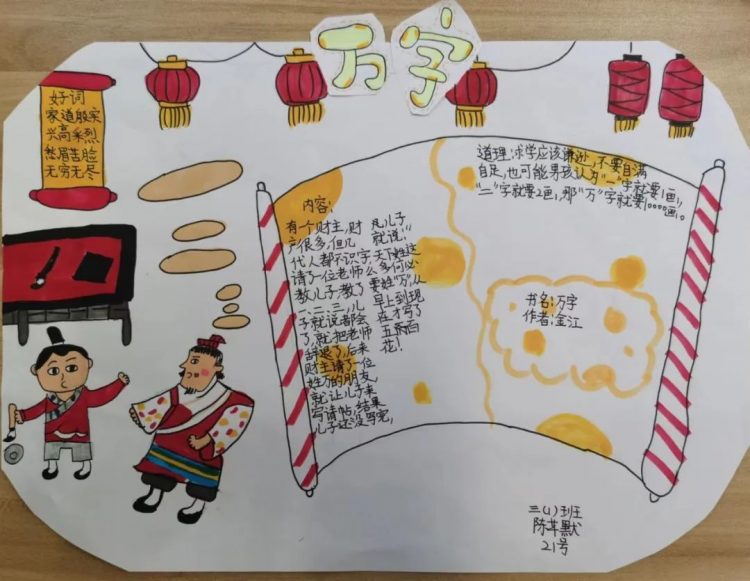 万字
好词
家道殷实
兴高采烈
愁眉苦脸
无穷无尽
内容:
有一个财主,财
产很多,但几
代人都不识字
请了一位老师
教儿子,教了
一、二、三,儿
子就说都会
了,就把老师
辞退了,后来
财主请了一位
姓万的朋友,
就让儿子来
写请帖,结果
儿子还没写完,
儿子
就说:“
天下姓这
么多何必
要姓“万”,从
早上到现
在才写了
五百
花!
道理:求学应该谦逊,不要自满
自足,也可能男孩认为“一”字就要1画,
“二”字就要2画,那“万”字就要10000画。
书名:万字
作者:金江
三(1)班
陈苇默
21号